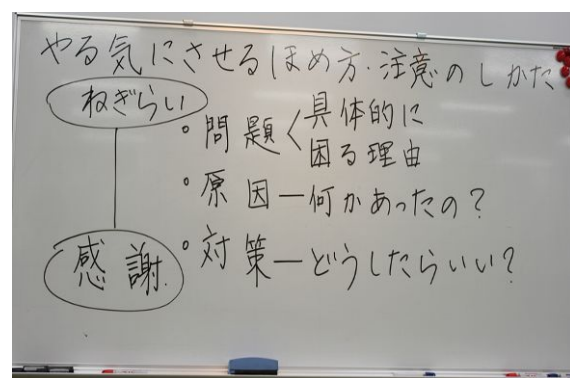 やる気にさせるほめ方・注意のしかた
ねぎらい
・問題く具体的に
困る理由
・原因ー何かあったの?
・対策ーどうしたらいい?
感謝